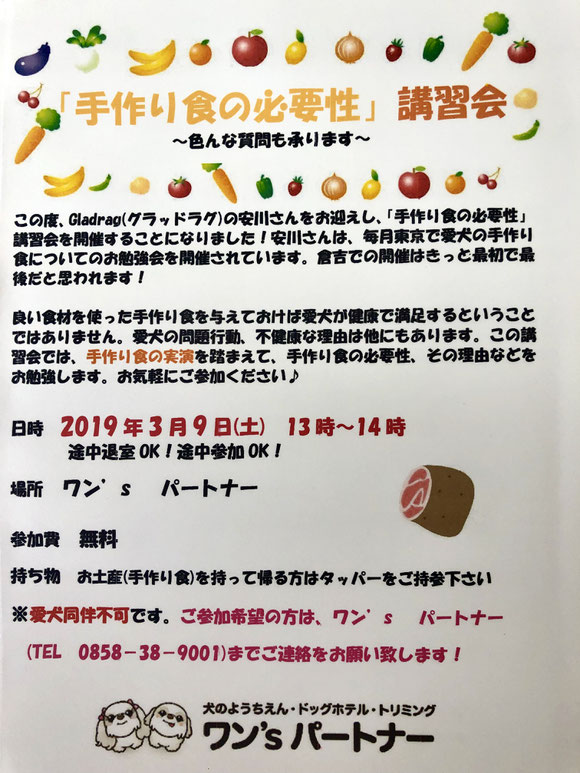 「手作り食の必要性」 講習会
～色んな質問も承ります～
この度、Gladrag(グラッドラグ)の安川さんをお迎えし、「手作り食の必要性」
講習会を開催することになりました！安川さんは、毎月東京で愛犬の手作り
食についてのお勉強会を開催されています。倉吉での開催はきっと最初で最
後だと思われます！
良い食材を使った手作り食を与えておけば愛犬が健康で満足するということ
ではありません。愛犬の問題行動、不健康な理由は他にもあります。この講
習会では、手作り食の実演を踏まえて、手作り食の必要性、その理由などを
お勉強します。お気軽にご参加ください♪
日時 2019年3月9日(土) 13時～14時
途中退室OK！途中参加OK！
場所 ワン’s パートナー
参加費 無料
持ち物 お土産(手作り食)を持って帰る方はタッパーをご持参下さい
※愛犬同伴不可です。ご参加希望の方は、ワン’s パートナー
(TEL 0858－38－9001)までご連絡をお願い致します！
犬のようちえん・ドッグホテル・トリミング
ワン'sパートナー